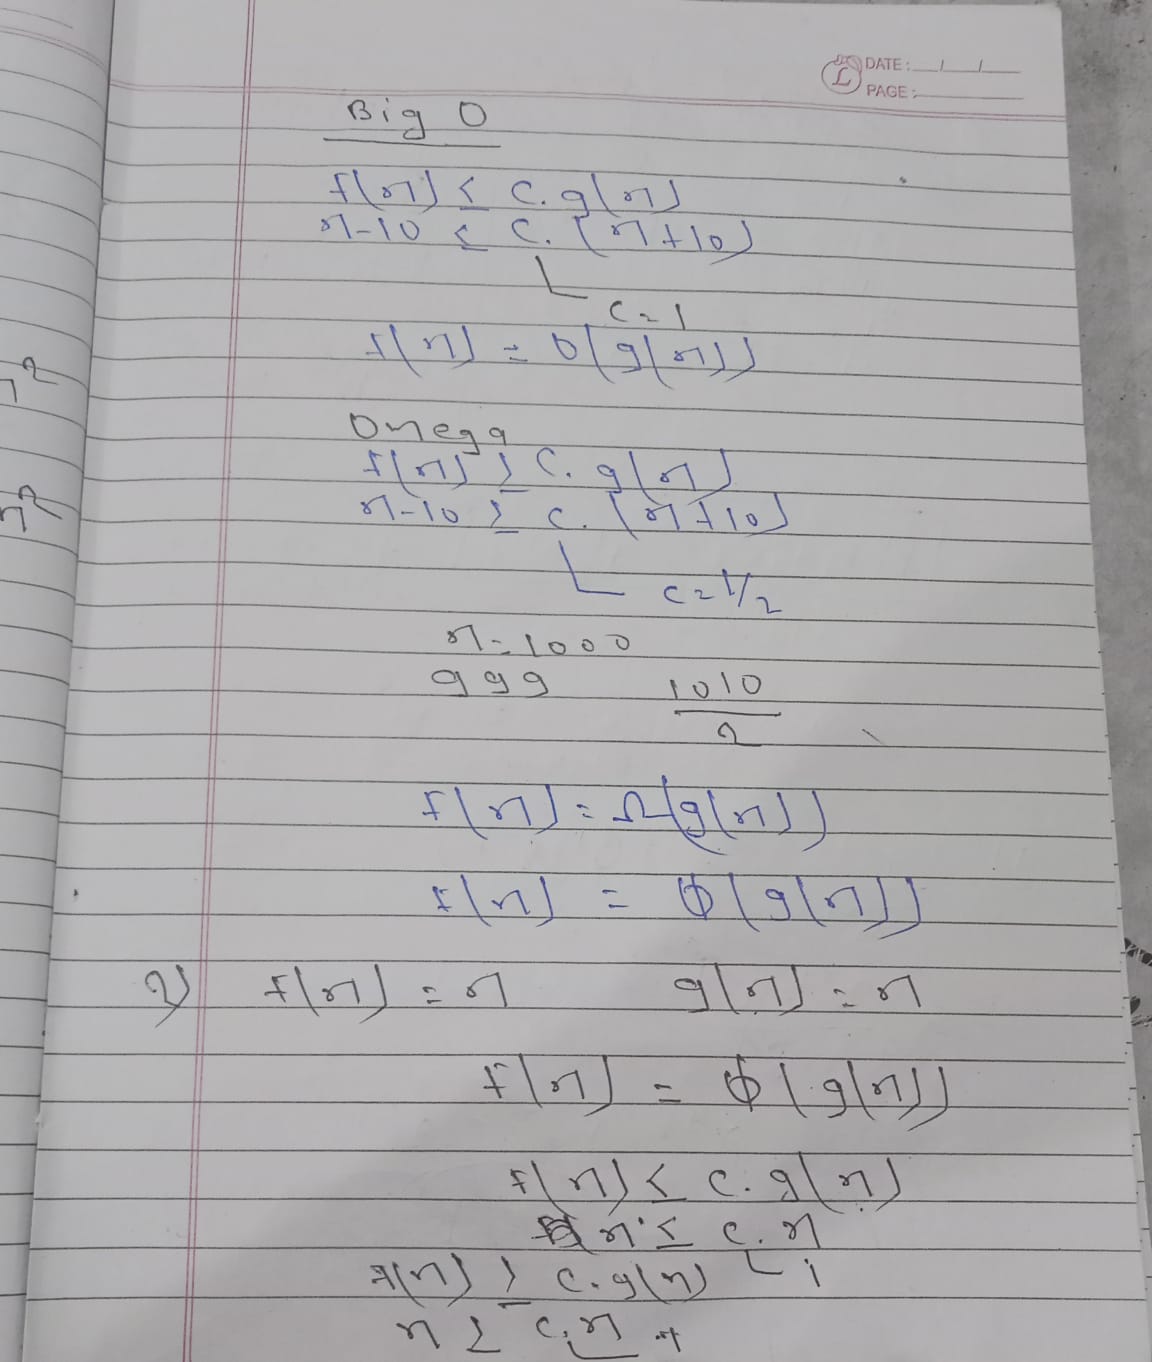 DATE: __/__/__
PAGE:
Big O
f(n) ≤ c.g(n)
n-10 ≤ c.(n+10)
c=1
f(n) = O(g(n))
Omega
f(n) ≥ c.g(n)
n-10 ≥ c.(n+10)
c=1/2
n=1000
999 1010/2
f(n) = Ω(g(n))
f(n) = Φ(g(n))
2) f(n) = n g(n) = n
f(n) = Φ(g(n))
f(n) ≤ c.g(n)
n ≤ c.n
f(n) ≥ c.g(n)
n ≥ c.n